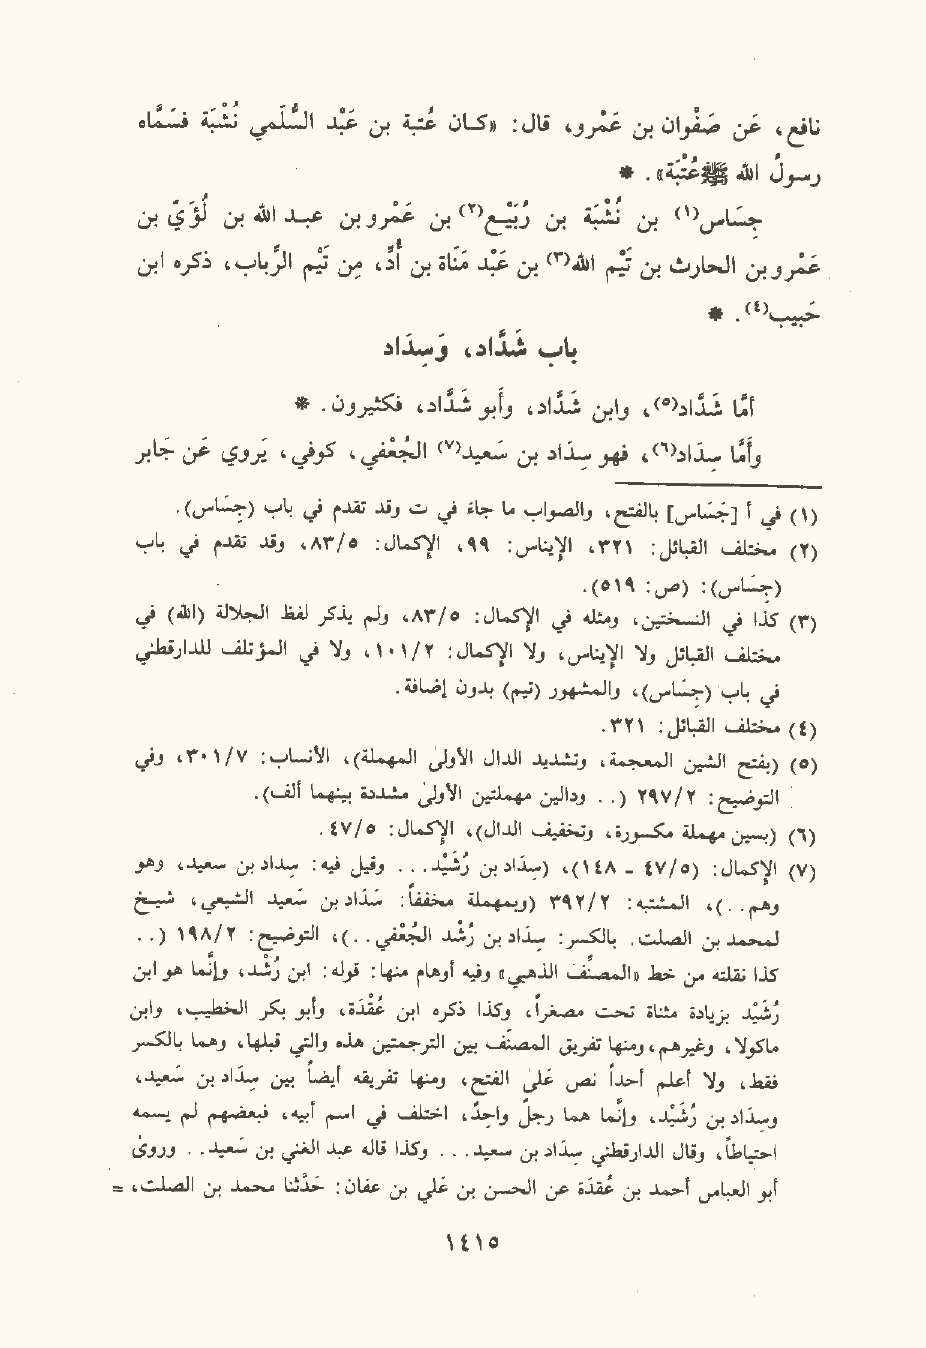 نافع، عَن صَفْوان بن عَمْرو، قال: «كـان عُتبة بن عَبْد السُّلَمي نُشْبَة فسَمَّاه
رسولُ الله ﷺ عُتْبَة». *
جِسَاس(١) بن نُشْبَة بن رُبَيْع(٢) بن عَمْرو بن عبـد الله بن لُؤَيّ بن
عَمْرو بن الحارث بن تَيْم الله(٣) بن عَبْد مَنَاة بن أُدّ، مِن تَيْم الرِّباب، ذكره ابن
حَبيب(٤). *
باب شَدَّاد، وَسِدَاد
أمَّا شَدَّاد(٥)، وابن شَدَّاد، وأبو شَدَّاد، فكثيرون. *
وأمَّا سِدَاد(٦)، فهو سِدَاد بن سَعيد(٧) الجُعْفي، كوفي، يَروي عَن جَابر
(١) في أ [جَسَاس] بالفتح، والصواب ما جاءَ في ت وقد تقدم في باب (جِسَاس).
(٢) مختلف القبائل: ٣٢١، الإيناس: ٩٩، الإكمال: ٨٣/٥، وقد تقدم في باب
(جِسَاس): (ص: ٥١٩).
(٣) كذا في النسختين، ومثله في الإكمال: ٨٣/٥، ولم يذكر لفظ الجلالة (الله) في
مختلف القبائل ولا الإيناس، ولا الإكمال: ١٠١/٢، ولا في المؤتلف للدارقطني
في باب (جِسَاس)، والمشهور (تيم) بدون إضافة.
(٤) مختلف القبائل: ٣٢١.
(٥) (بفتح الشين المعجمة، وتشديد الدال الأولى المهملة)، الأنساب: ٣٠١/٧، وفي
التوضيح: ٢٩٧/٢ (. . ودالين مهملتين الأولى مشددة بينهما ألف).
(٦) (بسين مهملة مكسورة، وتخفيف الدال)، الإكمال: ٤٧/٥.
(٧) الإكمال: (٤٧/٥ - ١٤٨)، (سِدَاد بن رُشَيْد. . . وقيل فيه: سِداد بن سعيد، وهو
وهم. .)، المشتبه: ٣٩٢/٢ (وبمهملة مخففاً: سَدَاد بن سَعيد الشيعي، شيخ
لمحمد بن الصلت. بالكسر: سِدَاد بن رُشد الجُعْفي. .)، التوضيح: ١٩٨/٢ (. .
كذا نقلته من خط «المصنِّف الذهبي» وفيه أوهام منها: قوله: ابن رُشْد، وإنَّما هو ابن
رُشَيْد بزيادة مثناة تحت مصغراً، وكذا ذكره ابن عُقْدَة، وأبو بكر الخطيب، وابن
ماكولا، وغيرهم، ومنها تفريق المصنِّف بين الترجمتين هذه والتي قبلها، وهما بالكسر
فقط، ولا أعلم أحداً نص علىٰ الفتح، ومنها تفريقه أيضاً بين سِدَاد بن سَعيد،
وسِدَاد بن رُشَيْد، وإنَّما هما رجل واحِد، اختلف في اسم أبيه، فبعضهم لم يسمه
احتياطاً، وقال الدارقطني سِدَاد بن سعيد. . . وكذا قاله عبد الغني بن سَعيد. . وروىٰ
أبو العباس أحمد بن عُقدَة عن الحسن بن علي بن عفان: حَدَّثنا محمد بن الصلت، =
١٤١٥